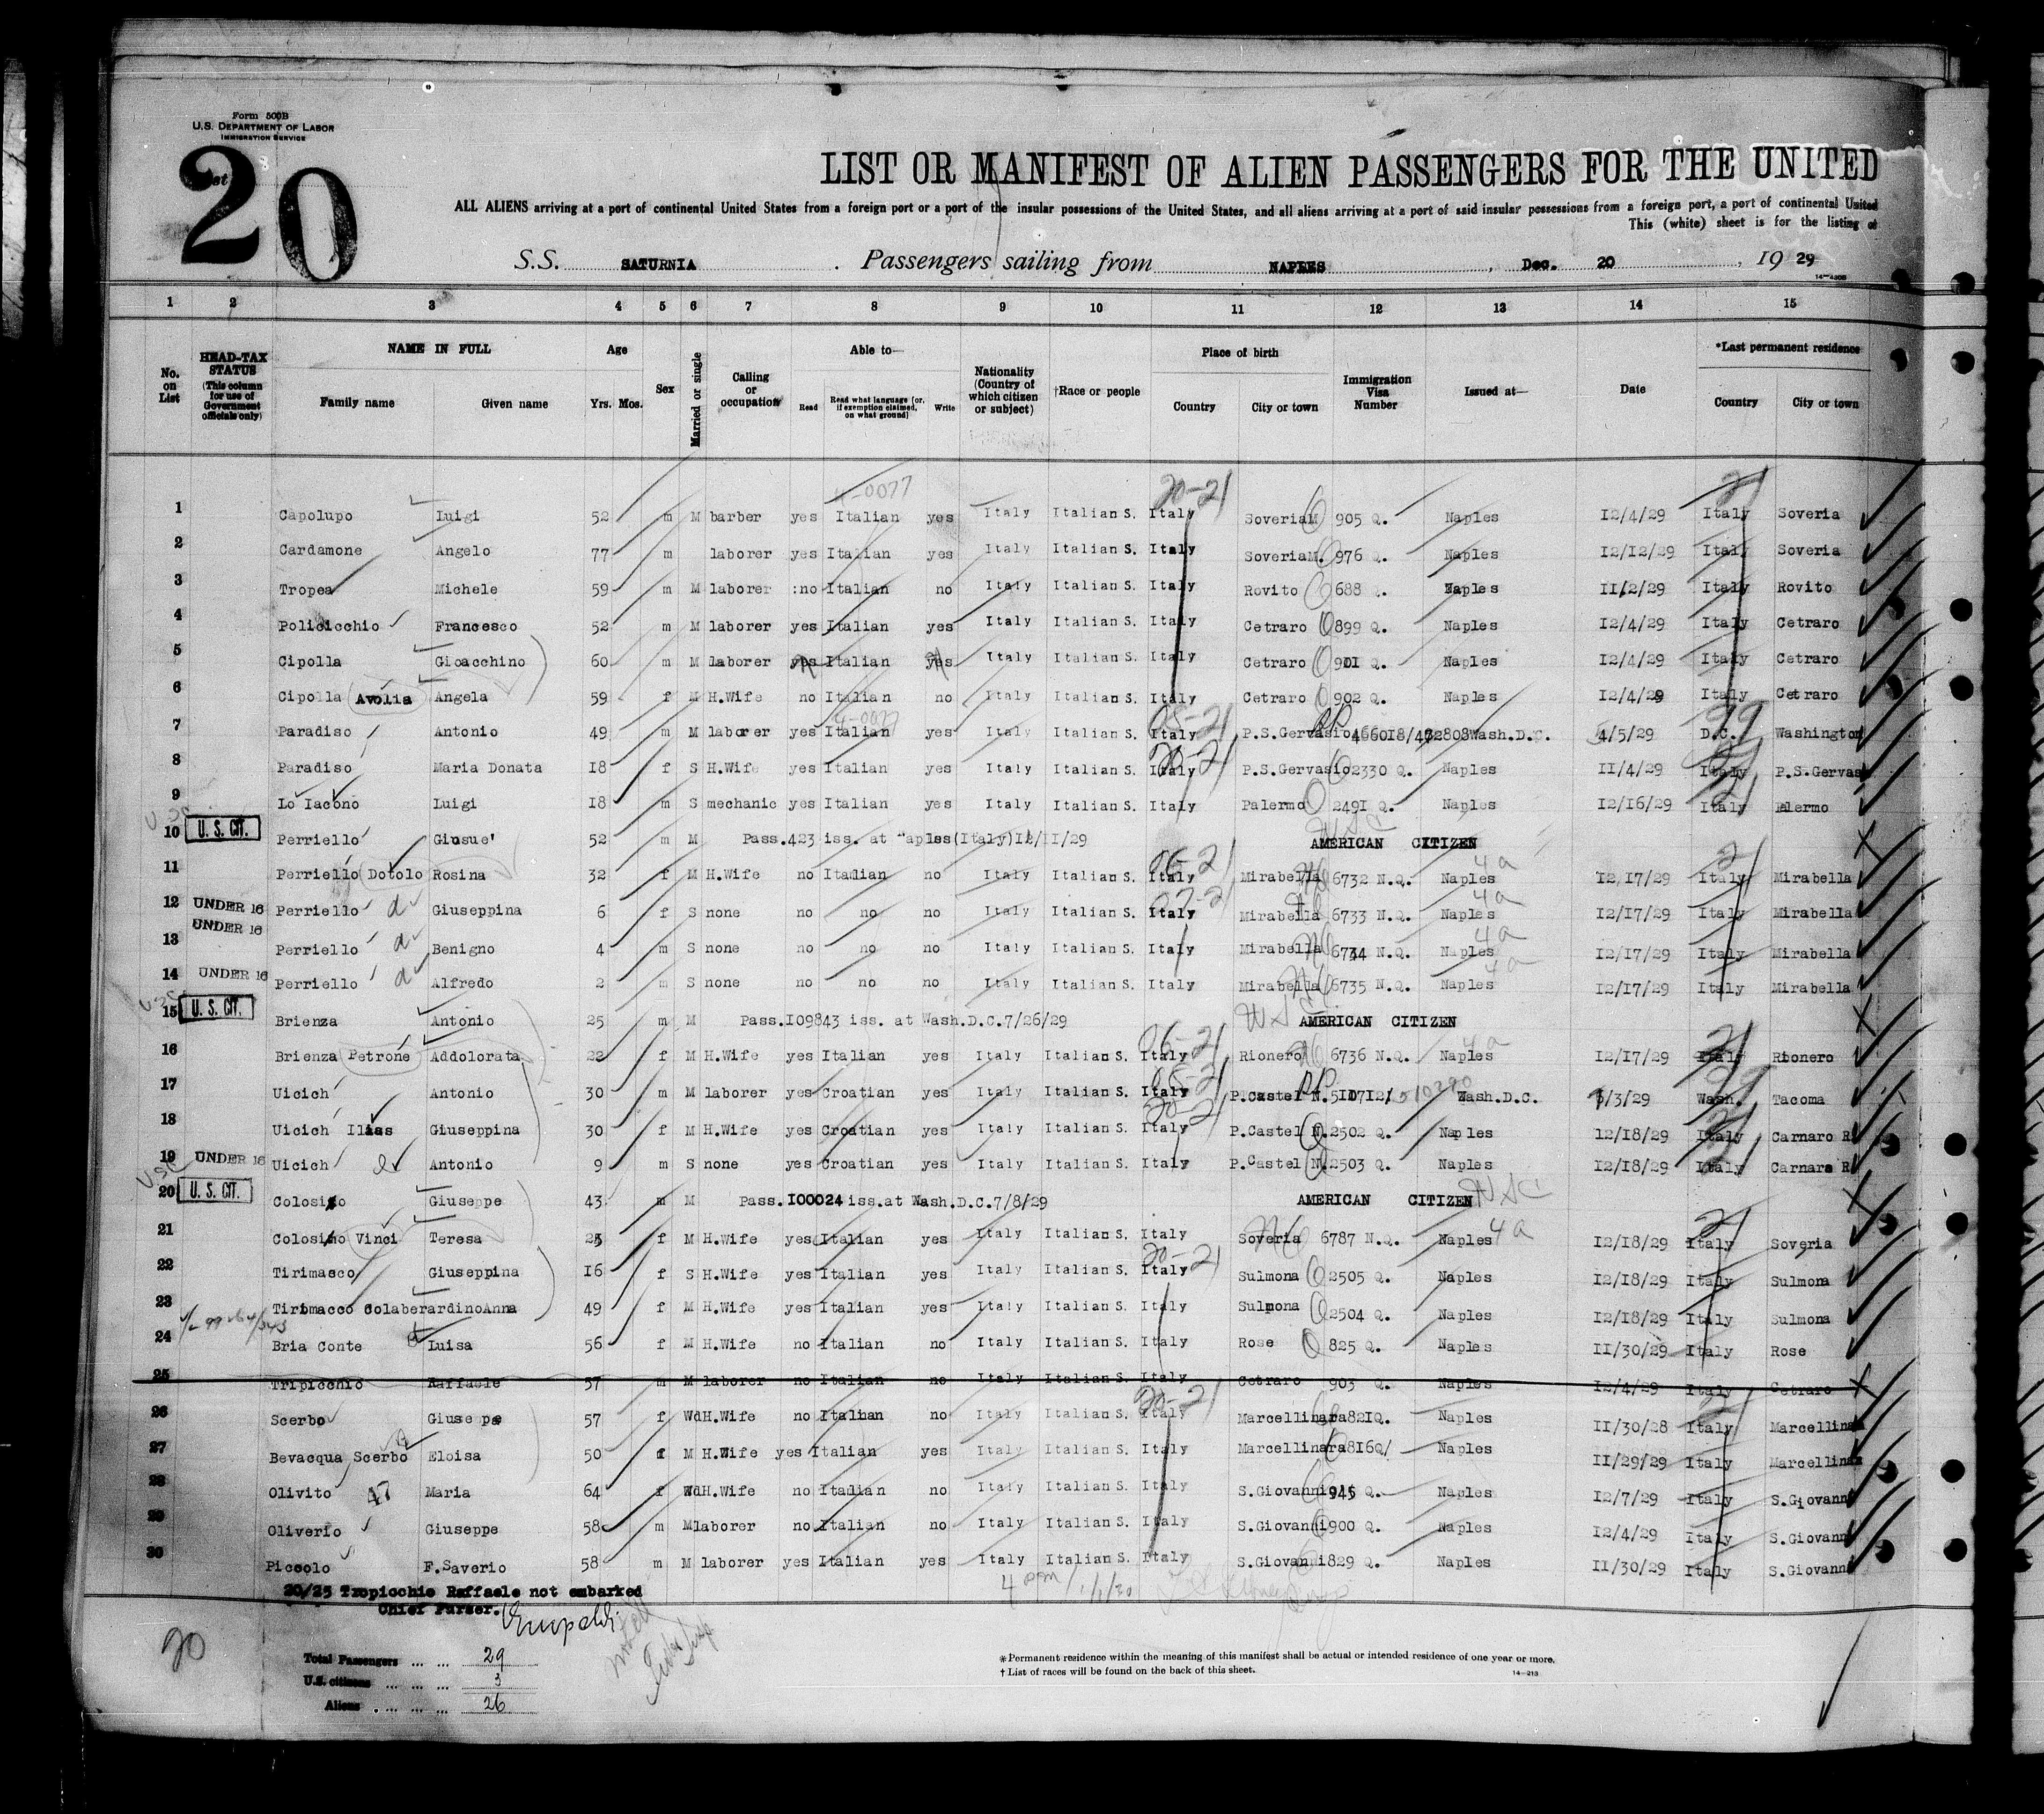 Form 500B
U.S. DEPARTMENT OF LABOR
IMMIGRATION SERVICE
20
LIST OR MANIFEST OF ALIEN PASSENGERS FOR THE UNITED
ALL ALIENS arriving at a port of continental United States from a foreign port or a port of the insular possessions of the United States, and all aliens arriving at a port of said insular possessions from a foreign port, a port of continental United
This (white) sheet is for the listing of
S.S. SATURNIA . Passengers sailing from NAPLES , Dec. 20 , 19 29
1 2 3 4 5 6 7 8 9 10 11 12 13 14 15
No. on List
HEAD-TAX STATUS (This column for use of Government officials only)
NAME IN FULL Family name Given name
Age Yrs. Mos.
Sex
Married or single
Calling or occupation
Able to— Read Read what language [or, if exemption claimed, on what ground] Write
Nationality (Country of which citizen or subject)
†Race or people
Place of birth Country City or town
Immigration Visa Number
Issued at—
Date
*Last permanent residence Country City or town
4-0077 20-21 21
1 Capolupo Luigi 52 m M barber yes Italian yes Italy Italian S. Italy Soveria M 905 Q. Naples 12/4/29 Italy Soveria
2 Cardamone Angelo 77 m laborer yes Italian yes Italy Italian S. Italy Soveria M. 976 Q. Naples 12/12/29 Italy Soveria
3 Tropea Michele 59 m M laborer :no Italian no Italy Italian S. Italy Rovito 688 Q. Naples 11/2/29 Italy Rovito
4 Policicchio Francesco 52 m M laborer yes Italian yes Italy Italian S. Italy Cetraro 899 Q. Naples 12/4/29 Italy Cetraro
5 Cipolla Gioacchino 60 m M laborer yes Italian yes Italy Italian S. Italy Cetraro 901 Q. Naples 12/4/29 Italy Cetraro
6 Cipolla Avolia Angela 59 f M H.Wife no Italian no Italy Italian S. Italy Cetraro 902 Q. Naples 12/4/29 Italy Cetraro
7 Paradiso Antonio 49 m M laborer yes Italian yes Italy Italian S. Italy P.S.Gervasio Wash.D.C. 4/5/29 D.C. Washington
8 Paradiso Maria Donata 18 f S H.Wife yes Italian yes Italy Italian S. Italy P.S.Gervasio 2330 Q. Naples 11/4/29 Italy P.S.Gervas
9 Lo Iacono Luigi 18 m S mechanic yes Italian yes Italy Italian S. Italy Palermo 2491 Q. Naples 12/16/29 Italy Palermo
10 U. S. CIT. Perriello Giosue' 52 m M Pass.423 iss. at Naples(Italy)12/11/29 AMERICAN CITIZEN
11 Perriello Dotolo Rosina 32 f M H.Wife no Italian no Italy Italian S. Italy Mirabella 6732 N.Q. Naples 4a 12/17/29 Italy Mirabella
12 UNDER 16 Perriello d Giuseppina 6 f S none no no no Italy Italian S. Italy Mirabella 6733 N.Q. Naples 4a 12/17/29 Italy Mirabella
13 UNDER 16 Perriello d Benigno 4 m S none no no no Italy Italian S. Italy Mirabella 6734 N.Q. Naples 4a 12/17/29 Italy Mirabella
14 UNDER 16 Perriello d Alfredo 2 m S none no no no Italy Italian S. Italy Mirabella 6735 N.Q. Naples 4a 12/17/29 Italy Mirabella
15 U. S. CIT. Brienza Antonio 25 m M Pass.109843 iss. at Wash.D.C.7/26/29 AMERICAN CITIZEN
16 Brienza Petrone Addolorata 22 f M H.Wife yes Italian yes Italy Italian S. Italy Rionero 6736 N.Q. Naples 4a 12/17/29 Italy Rionero
17 Uicich Antonio 30 m M laborer yes Croatian yes Italy Italian S. Italy P.Castel N. Wash.D.C. /3/29 Wash. Tacoma
18 Uicich Ilias Giuseppina 30 f M H.Wife yes Croatian yes Italy Italian S. Italy P.Castel N. 2502 Q. Naples 12/18/29 Italy Carnaro R.
19 UNDER 16 Uicich Antonio 9 m S none yes Croatian yes Italy Italian S. Italy P.Castel N. 2503 Q. Naples 12/18/29 Italy Carnaro R.
20 U. S. CIT. Colosimo Giuseppe 43 m M Pass.100024 iss.at Wash.D.C.7/8/29 AMERICAN CITIZEN
21 Colosimo Vinci Teresa 25 f M H.Wife yes Italian yes Italy Italian S. Italy Soveria 6787 N.Q. Naples 4a 12/18/29 Italy Soveria
22 Tirimacco Giuseppina 16 f S H.Wife yes Italian yes Italy Italian S. Italy Sulmona 2505 Q. Naples 12/18/29 Italy Sulmona
23 Tirimacco Colaberardino Anna 49 f M H.Wife yes Italian yes Italy Italian S. Italy Sulmona 2504 Q. Naples 12/18/29 Italy Sulmona
24 Bria Conte Luisa 56 f M H.Wife no Italian no Italy Italian S. Italy Rose 825 Q. Naples 11/30/29 Italy Rose
25 Tripicchio Raffaele 57 m M laborer no Italian no Italy Italian S. Italy Cetraro 903 Q. Naples 12/4/29 Italy Cetraro
26 Scerbo Giuseppe 57 f Wd H.Wife no Italian no Italy Italian S. Italy Marcellinara 821Q. Naples 11/30/28 Italy Marcellina
27 Bevacqua Scerbo Eloisa 50 f M H.Wife yes Italian yes Italy Italian S. Italy Marcellinara 816Q/ Naples 11/29/29 Italy Marcellina
28 Olivito Maria 64 f Wd H.Wife no Italian no Italy Italian S. Italy S.Giovanni 945 Q. Naples 12/7/29 Italy S.Giovann
29 Oliverio Giuseppe 58 m M laborer no Italian no Italy Italian S. Italy S.Giovanni 900 Q. Naples 12/4/29 Italy S.Giovann
30 Piccolo F.Saverio 58 m M laborer yes Italian yes Italy Italian S. Italy S.Giovanni 829 Q. Naples 11/30/29 Italy S.Giovann
20/25 Tropicchio Raffaele not embarked
Chief Purser.
4 pm 1/1/30
20
Total Passengers ... ... 29
U.S. citizens ... ... ... 3
Aliens . ... ... ... 26
*Permanent residence within the meaning of this manifest shall be actual or intended residence of one year or more.
† List of races will be found on the back of this sheet.
14—213